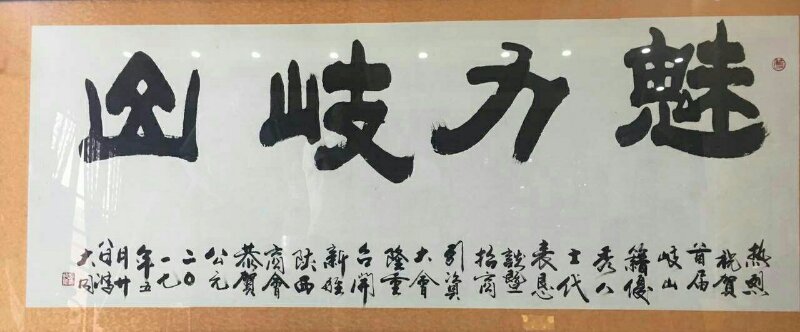 魅力岐山
熱烈
祝賀
首届
岐山
籍優
秀人
士代
表恳
談暨
招商
引資
大會
隆重
召開
新疆
陕西
商會
恭賀
公元
二〇
一七
年五
月廿
大同